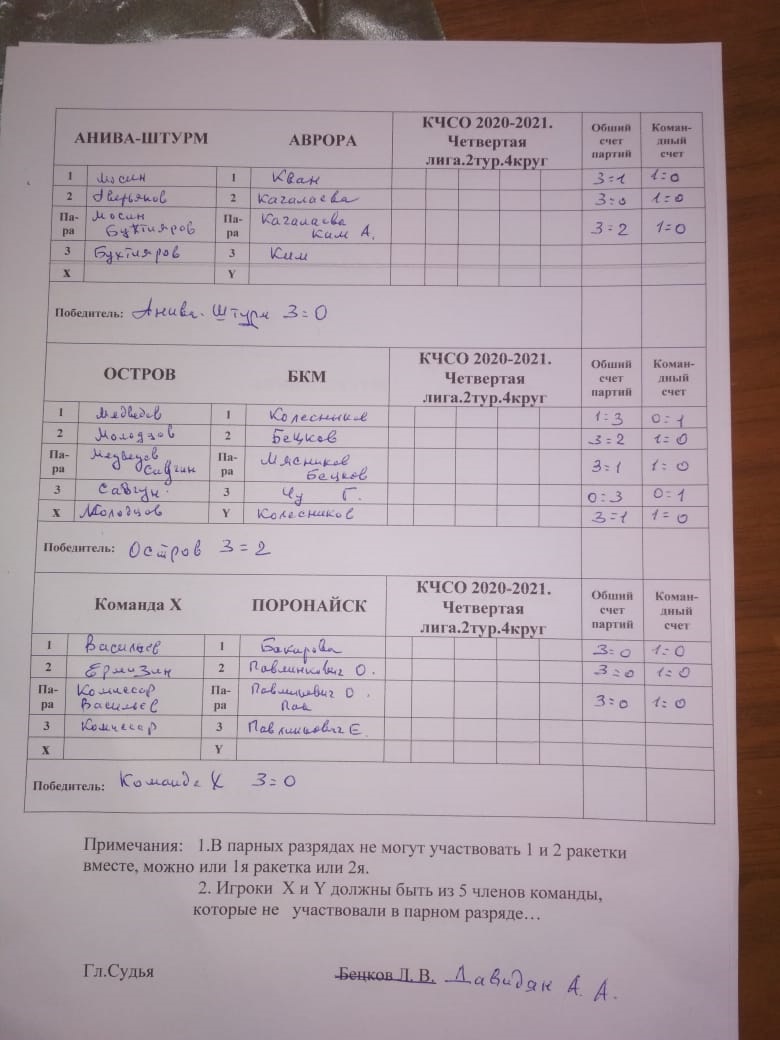 АНИВА-ШТУРМ АВРОРА КЧСО 2020-2021. Четвертая лига.2тур.4круг Обший счет партий Коман-дный счет
1 Мосин 1 Кван 3=1 1=0
2 Аверьянов 2 Кагалаева 3=0 1=0
Па-ра Мосин Бухтияров Па-ра Кагалаева Ким А. 3=2 1=0
3 Бухтияров 3 Ким
X Y
Победитель: Анива-Штурм 3=0
ОСТРОВ БКМ КЧСО 2020-2021. Четвертая лига.2тур.4круг Обший счет партий Коман-дный счет
1 Медведев 1 Колесников 1=3 0=1
2 Молодцов 2 Бецков 3=2 1=0
Па-ра Медведев Савгин Па-ра Мясников Бецков 3=1 1=0
3 3 Чу Г. 0=3 0=1
X Молодцов Y Колесников 3=1 1=0
Победитель: Остров 3=2
Команда Х ПОРОНАЙСК КЧСО 2020-2021. Четвертая лига.2тур.4круг Обший счет партий Коман-дный счет
1 Васильев 1 Бакирова 3=0 1=0
2 Ермизин 2 Павлинкович О. 3=0 1=0
Па-ра Комиссар Васильев Па-ра О. Пак 3=0 1=0
3 Комиссар 3 Павлинкович Е.
X Y
Победитель: Команда Х 3=0
Примечания: 1.В парных разрядах не могут участвовать 1 и 2 ракетки
вместе, можно или 1я ракетка или 2я.
2. Игроки X и Y должны быть из 5 членов команды,
которые не участвовали в парном разряде…
Гл.Судья Бецков Л. В. Давидян А. А.